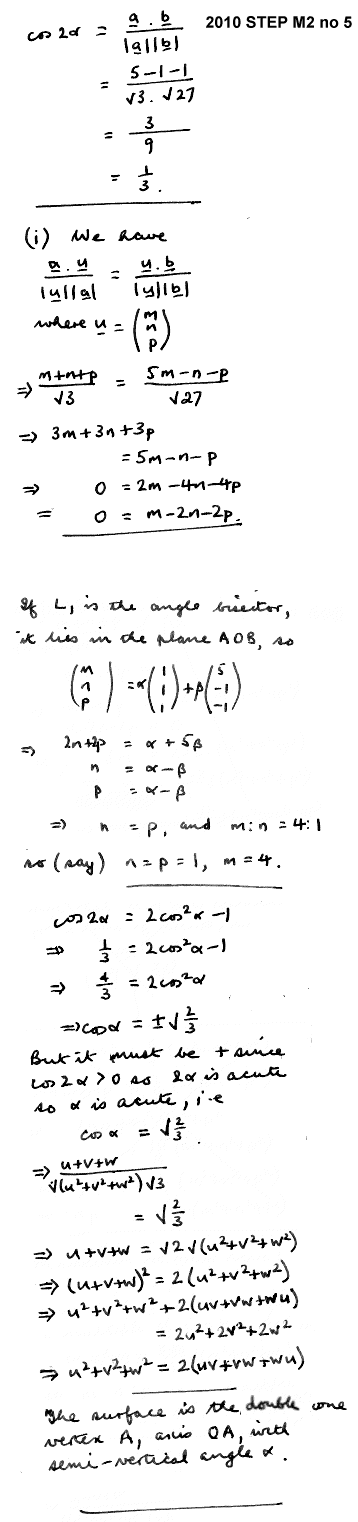 2010 STEP M2 no 5
cos 2α = a.b / |a||b|
= 5-1-1 / √3.√27
= 3/9
= 1/3.
(i) We have
a.u / |u||a| = u.b / |u||b|
where u = (m n p)
⇒ m+n+p / √3 = 5m-n-p / √27
⇒ 3m+3n+3p
= 5m-n-p
⇒ 0 = 2m-4n-4p
= 0 = m-2n-2p.
If L₁ is the angle bisector,
it lies in the plane AOB, so
(m n p) = α(1 1 1) + β(5 -1 -1)
⇒ 2n+2p = α+5β
n = α-β
p = α-β
⇒ n = p, and m:n = 4:1
so (say) n=p=1, m=4.
cos 2α = 2cos²α-1
⇒ 1/3 = 2cos²α-1
⇒ 4/3 = 2cos²α
⇒ cosα = ±√2/3
But it must be + since
cos 2α>0 so 2α is acute
so α is acute, i.e
cos α = √2/3.
⇒ u+v+w / √(u²+v²+w²)√3
= √2/3
⇒ u+v+w = √2√(u²+v²+w²)
⇒ (u+v+w)² = 2(u²+v²+w²)
⇒ u²+v²+w²+2(uv+vw+wu)
= 2u²+2v²+2w²
⇒ u²+v²+w² = 2(uv+vw+wu)
The surface is the double cone
vertex A, axis OA, with
semi-vertical angle α.